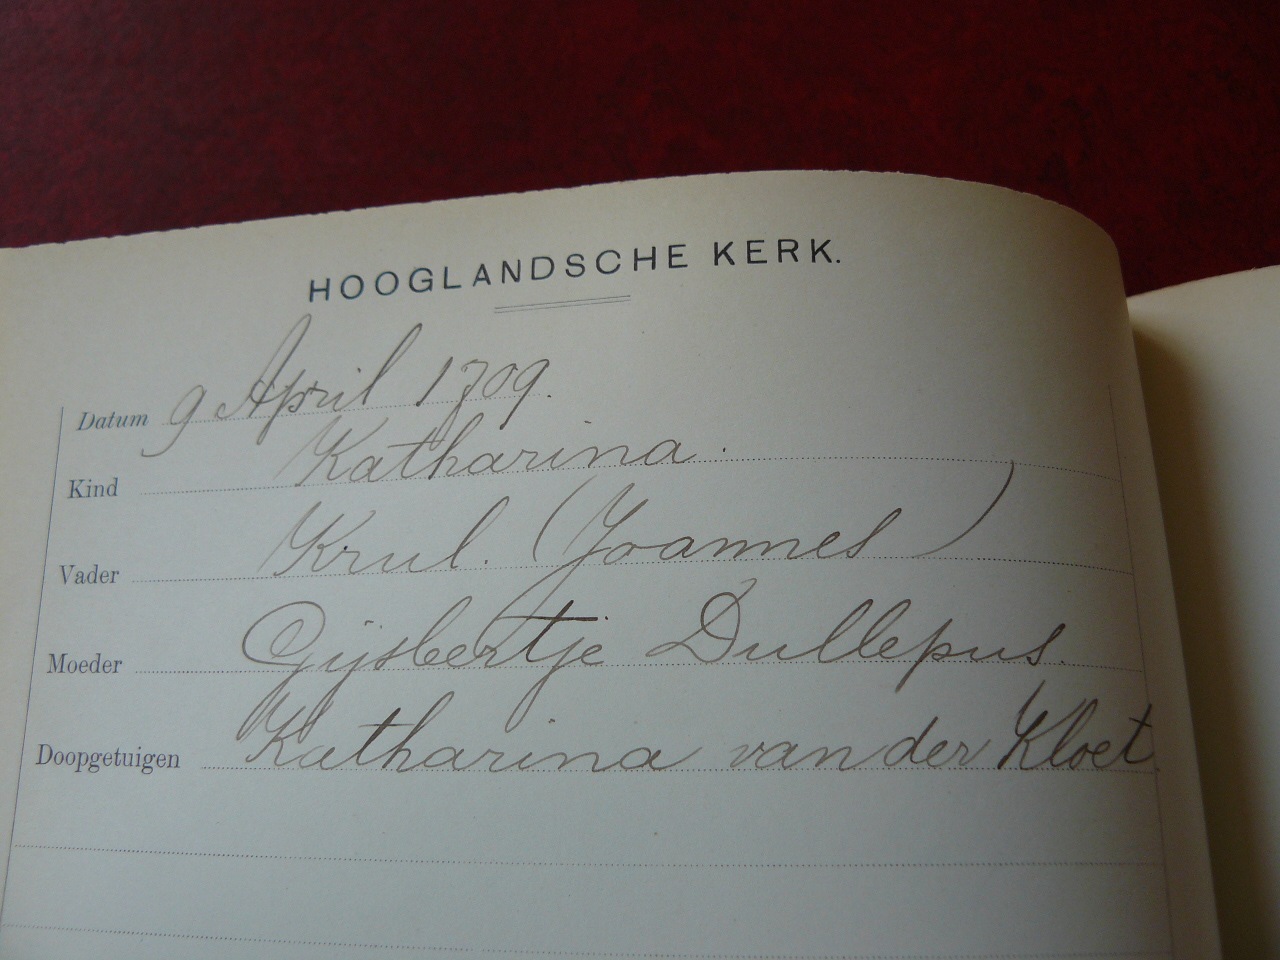 HOOGLANDSCHE KERK.
Datum 9 April 1709.
Kind Katharina.
Vader Krul. (Joannes)
Moeder Gijsbertje Dullepus.
Doopgetuigen Katharina van der Kloet.